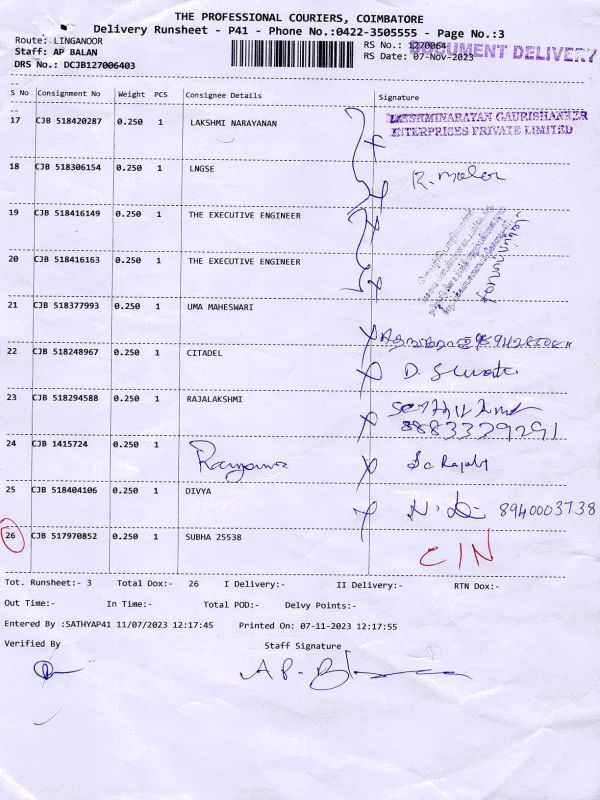 THE PROFESSIONAL COURIERS, COIMBATORE
Delivery Runsheet - P41 - Phone No.:0422-3505555 - Page No.:3
Route: LINGANOOR
RS No.: 1270064
DOCUMENT DELIVERY
Staff: AP BALAN
RS Date: 07-Nov-2023
DRS No.: DCJB127006403
S No Consignment No Weight PCS Consignee Details Signature
17 CJB 518420287 0.250 1 LAKSHMI NARAYANAN
LAKSHMINARAYAN GAURISHANKER
ENTERPRISES PRIVATE LIMITED
18 CJB 518306154 0.250 1 LNGSE
19 CJB 518416149 0.250 1 THE EXECUTIVE ENGINEER
20 CJB 518416163 0.250 1 THE EXECUTIVE ENGINEER
21 CJB 518377993 0.250 1 UMA MAHESWARI
22 CJB 518248967 0.250 1 CITADEL
23 CJB 518294588 0.250 1 RAJALAKSHMI
8883379291
24 CJB 1415724 0.250 1
25 CJB 518404106 0.250 1 DIVYA
8940003738
26 CJB 517970852 0.250 1 SUBHA 25538
CIN
Tot. Runsheet:- 3 Total Dox:- 26 I Delivery:- II Delivery:- RTN Dox:-
Out Time:- In Time:- Total POD:- Delvy Points:-
Entered By :SATHYAP41 11/07/2023 12:17:45 Printed On: 07-11-2023 12:17:55
Verified By Staff Signature